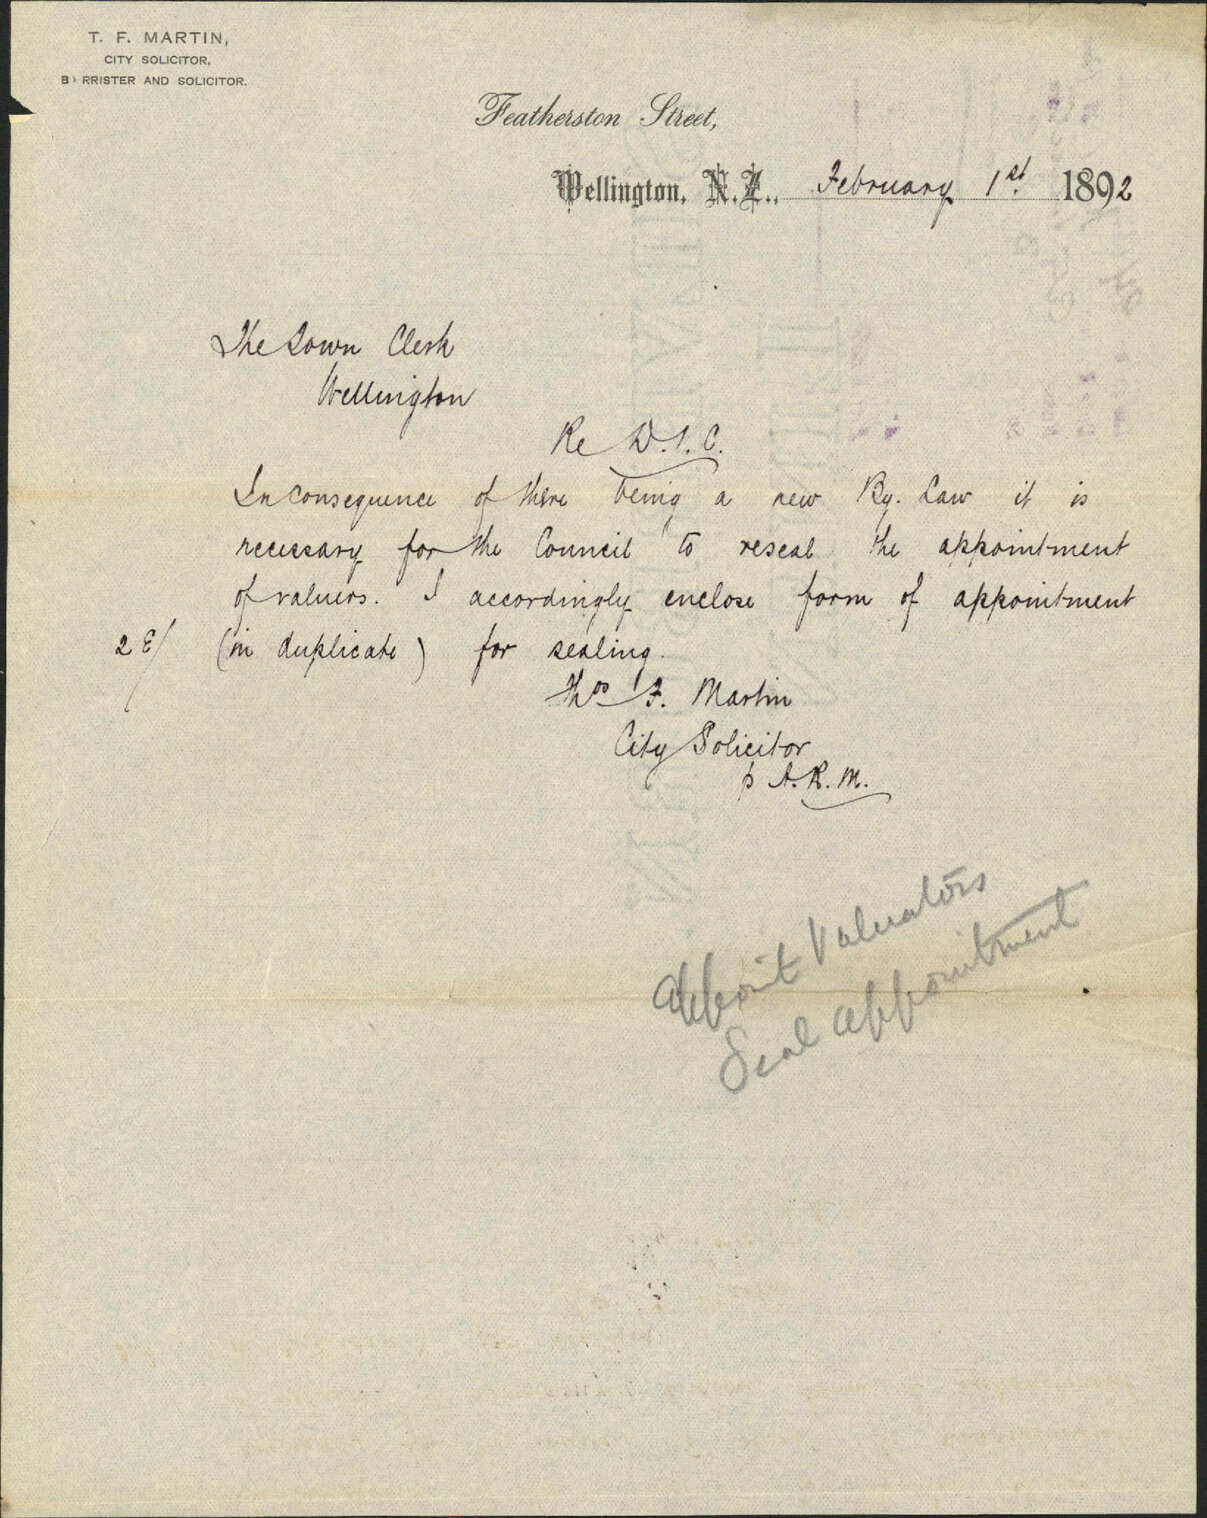 T. F. MARTIN,
CITY SOLICITOR,
B RRISTER AND SOLICITOR.
Featherston Street,
Wellington, N.Z., February 1st. 1892
The Town Clerk
Wellington
Re D.I.C.
In consequence of there being a new By. Law it is
necessary for the Council to reseal the appointment
of valuers. I accordingly enclose form of appointment
2 E/ (in duplicate) for sealing.
Thos F. Martin
City Solicitor
p A.R.M.
Appoint Valuators
Seal appointment